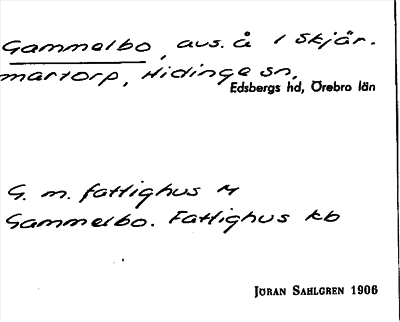 Gammelbo, avs. å 1 Skjår.
martorp, Hidinge sn,
Edsbergs hd, Örebro län
G. m. fattighus M
Gammelbo. Fattighus kb
JÖRAN SAHLGREN 1906